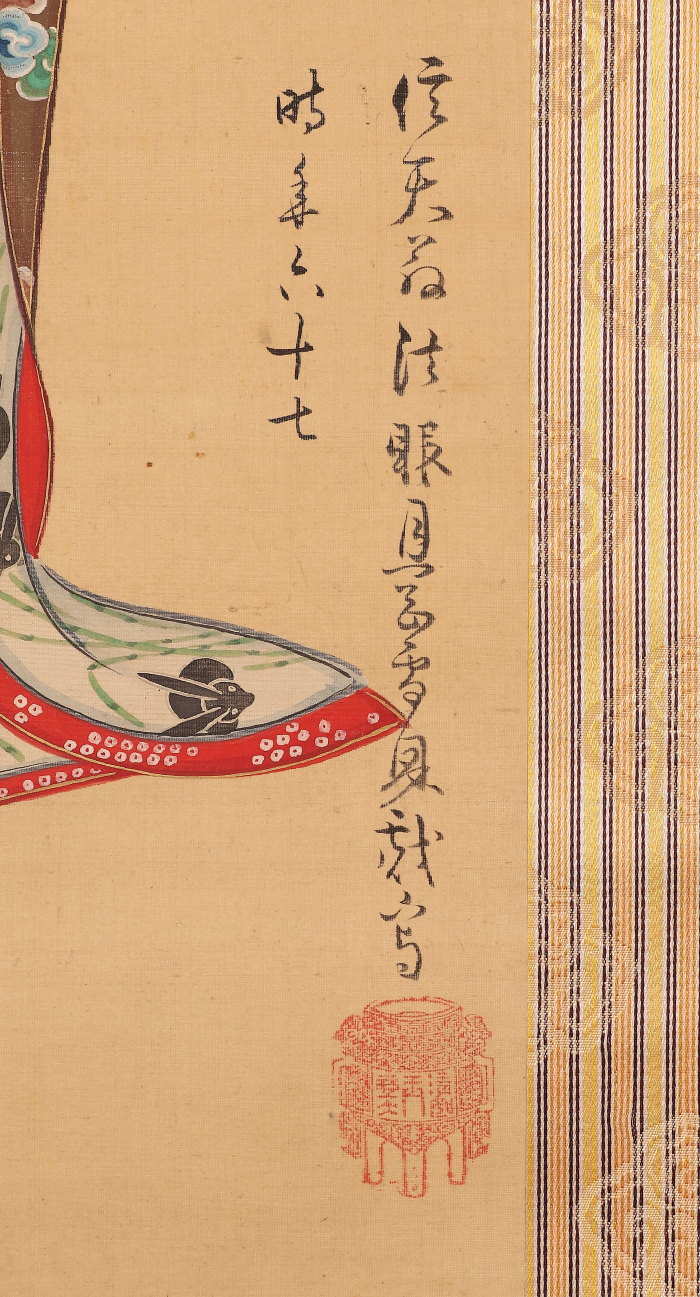 信天翁法眼月岡雪鼎戯写
時年六十七